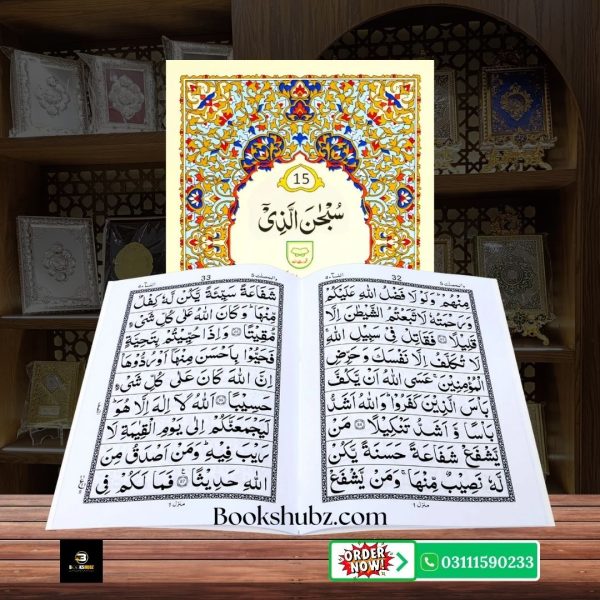 15
سُبْحٰنَ الَّذِيْٓ
32
مِنْهُمْ ؕ وَلَوْلَا فَضْلُ اللّٰهِ عَلَيْكُمْ
وَرَحْمَتُهٗ لَاتَّبَعْتُمُ الشَّيْطٰنَ اِلَّا
قَلِيْلًا ۝ فَقَاتِلْ فِيْ سَبِيْلِ اللّٰهِ ۚ
لَا تُكَلَّفُ اِلَّا نَفْسَكَ وَحَرِّضِ
الْمُؤْمِنِيْنَ ۚ عَسَى اللّٰهُ اَنْ يَّكُفَّ
بَاْسَ الَّذِيْنَ كَفَرُوْا ؕ وَاللّٰهُ اَشَدُّ
بَاْسًا وَّاَشَدُّ تَنْكِيْلًا ۝ مَنْ
يَّشْفَعْ شَفَاعَةً حَسَنَةً يَّكُنْ
لَّهٗ نَصِيْبٌ مِّنْهَا ۚ وَمَنْ يَّشْفَعْ
منزل ١
33
شَفَاعَةً سَيِّئَةً يَّكُنْ لَّهٗ كِفْلٌ
مِّنْهَا ؕ وَكَانَ اللّٰهُ عَلٰى كُلِّ شَيْءٍ
مُّقِيْتًا ۝ وَاِذَا حُيِّيْتُمْ بِتَحِيَّةٍ
فَحَيُّوْا بِاَحْسَنَ مِنْهَاۤ اَوْ رُدُّوْهَا ؕ
اِنَّ اللّٰهَ كَانَ عَلٰى كُلِّ شَيْءٍ
حَسِيْبًا ۝ اَللّٰهُ لَاۤ اِلٰهَ اِلَّا هُوَ ؕ
لَيَجْمَعَنَّكُمْ اِلٰى يَوْمِ الْقِيٰمَةِ لَا
رَيْبَ فِيْهِ ؕ وَمَنْ اَصْدَقُ مِنَ
اللّٰهِ حَدِيْثًا ۝ فَمَا لَكُمْ فِي
منزل ١
Bookshubz.com
ORDER
NOW!
03111590233